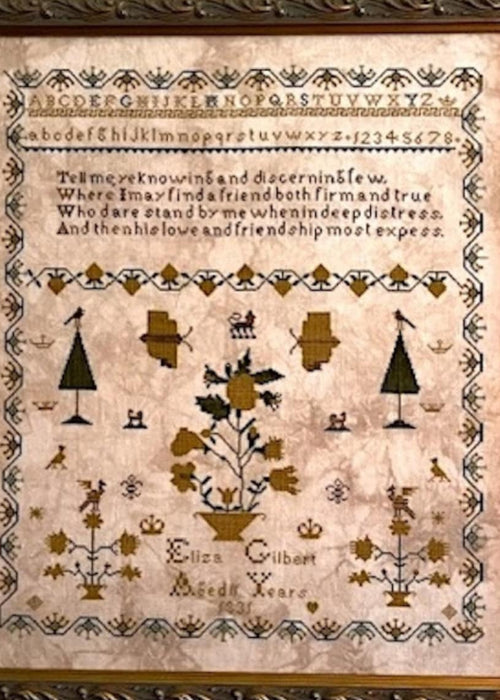 ABCDEFGHIJKLMNOPQRSTUVWXYZ
abcdefghijklmnopqrstuvwxyz. 12345678.
Tell me, ye knowing and discerning few,
Where I may find a friend both firm and true
Who dare stand by me when in deep distress.
And then his love and friendship most expess.
Eliza Gilbert
Aged 11 Years
1831